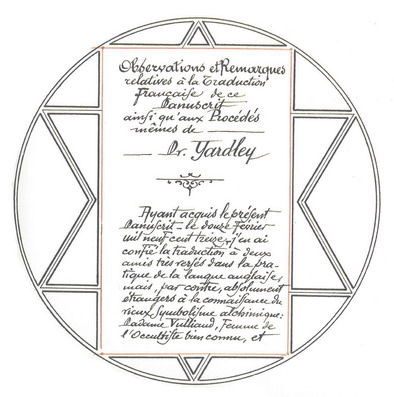 Observations et Remarques
relatives à la Traduction
Française de ce
Manuscrit
ainsi qu'aux Procédés
mêmes de
Dr. Yardley
Ayant acquis le présent
Manuscrit le douze Février
mil neuf cent treize, j'en ai
confié la traduction à deux
amis très versés dans la pra-
tique de la langue anglaise,
mais, par contre, absolument
étrangers à la connaissance du
vieux Symbolisme alchimique:
Madame Vulliaud, femme de
l'Occultiste bien connu, et